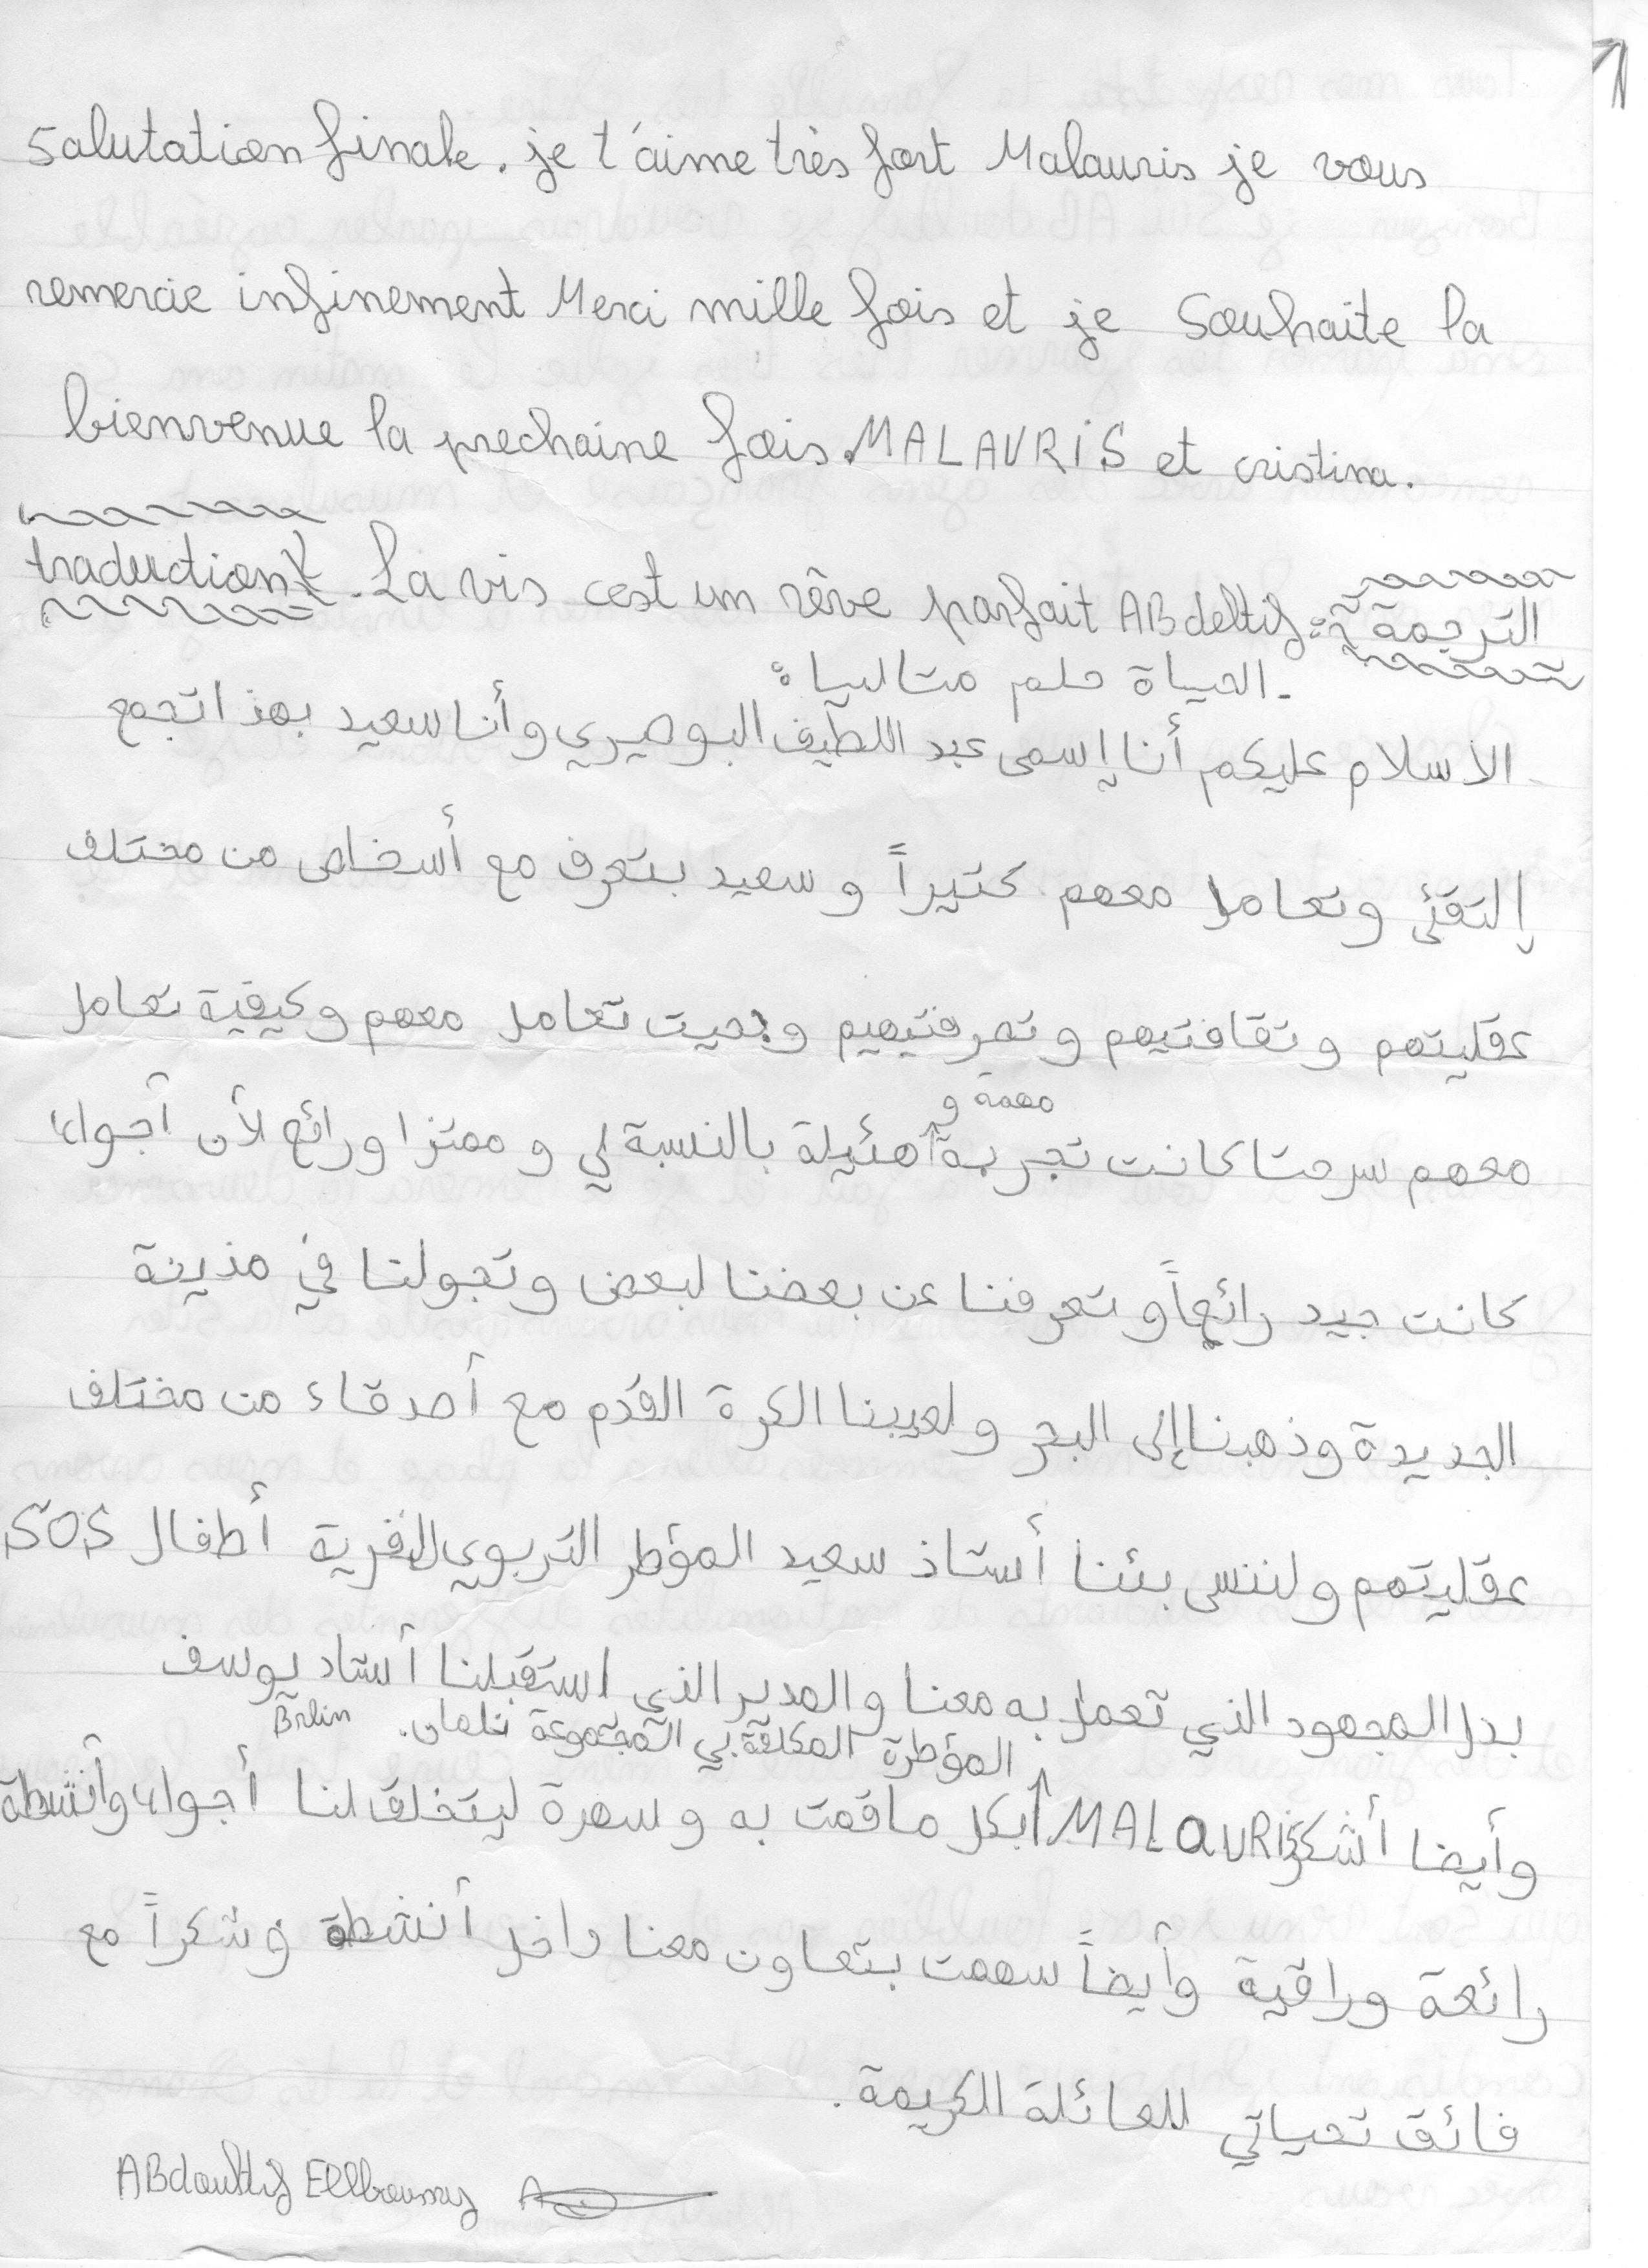 Salutation finale. je t'aime très fort Malauris je vous
remercie infinement Merci mille fois et je souhaite la
bienvenue la prechaine fois. MALAURiS et cristina.
traduction. La vis cest un rêve parfait ABdeltif: الترجمة:
- الحياة حلم متاليا:
- الاسلام عليكم أنا إسمى عبد اللطيف البوصيري وأنا سعيد بهذا تجمع
إلتقئ وتعامل معهم كتيراً و سعيد بتعرف مع أسخاص من مختلف
عقليتهم وتقافتيهم وتعرفتيهيم وبحيت تعامل معهم وكيفية تعامل
مهمة و
معهم سرحتا كانت تجربة هئيلة بالنسبة لي و ممتزا ورائع لأن أجواء
كانت جيد رائعاً و تعرفنا عن بعضنا لبعض وتجولنا في مذينة
الجديدة وذهبنا إلى البحر ولعيبنا الكرة القدم مع أصدقاء من مختلف
عقليتهم ولننسى بئننا أستاذ سعيد المؤطر التربوي للقرية أطفال SOS
بدل المجهود الذي تعمل به معنا والمدير الذي استقبلنا أستاد يوسف
المؤطرة المكلفة بي المجتموعة نلمان. Brlin
وأيضا أشكر MALaURiS بكل ماقمت به وسهرة ليتخلق لنا أجواء وأنشطة
رائعة وراقية وأيضاً سهمت بتعاون معنا داخل أنشطة وشكراً مع
فائق تحياتي للعائلة الكريمة.
ABdoultif Ellbousry